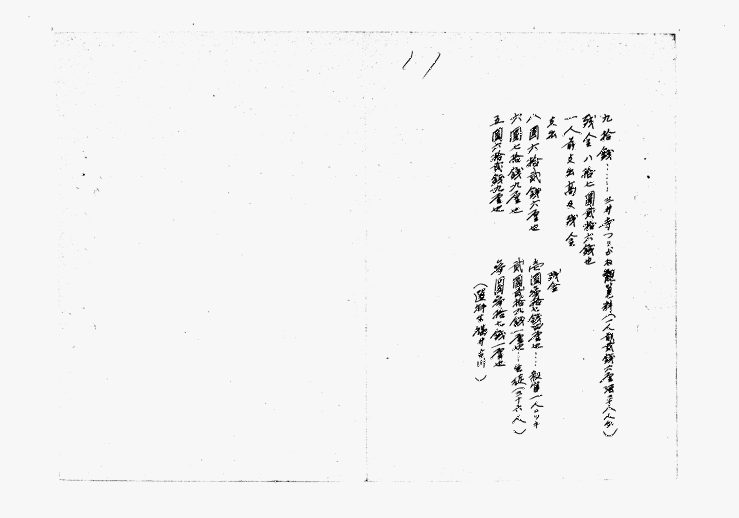 九拾錢……三井寺つりがね觀覽料(一人前貳錢六厘強三十八人分)
残金 八拾七圓貳拾六錢也
一人前支出高及残金
支出
残金
八圓六拾貳錢六厘也
壱圓拾七錢四厘也…教官一人ニツキ
六圓七拾錢九厘也
貳圓貳拾九錢一厘也…生徒(三十六人)
五圓六拾貳錢九厘也
参圓参拾七錢一厘也
(道師 井 )